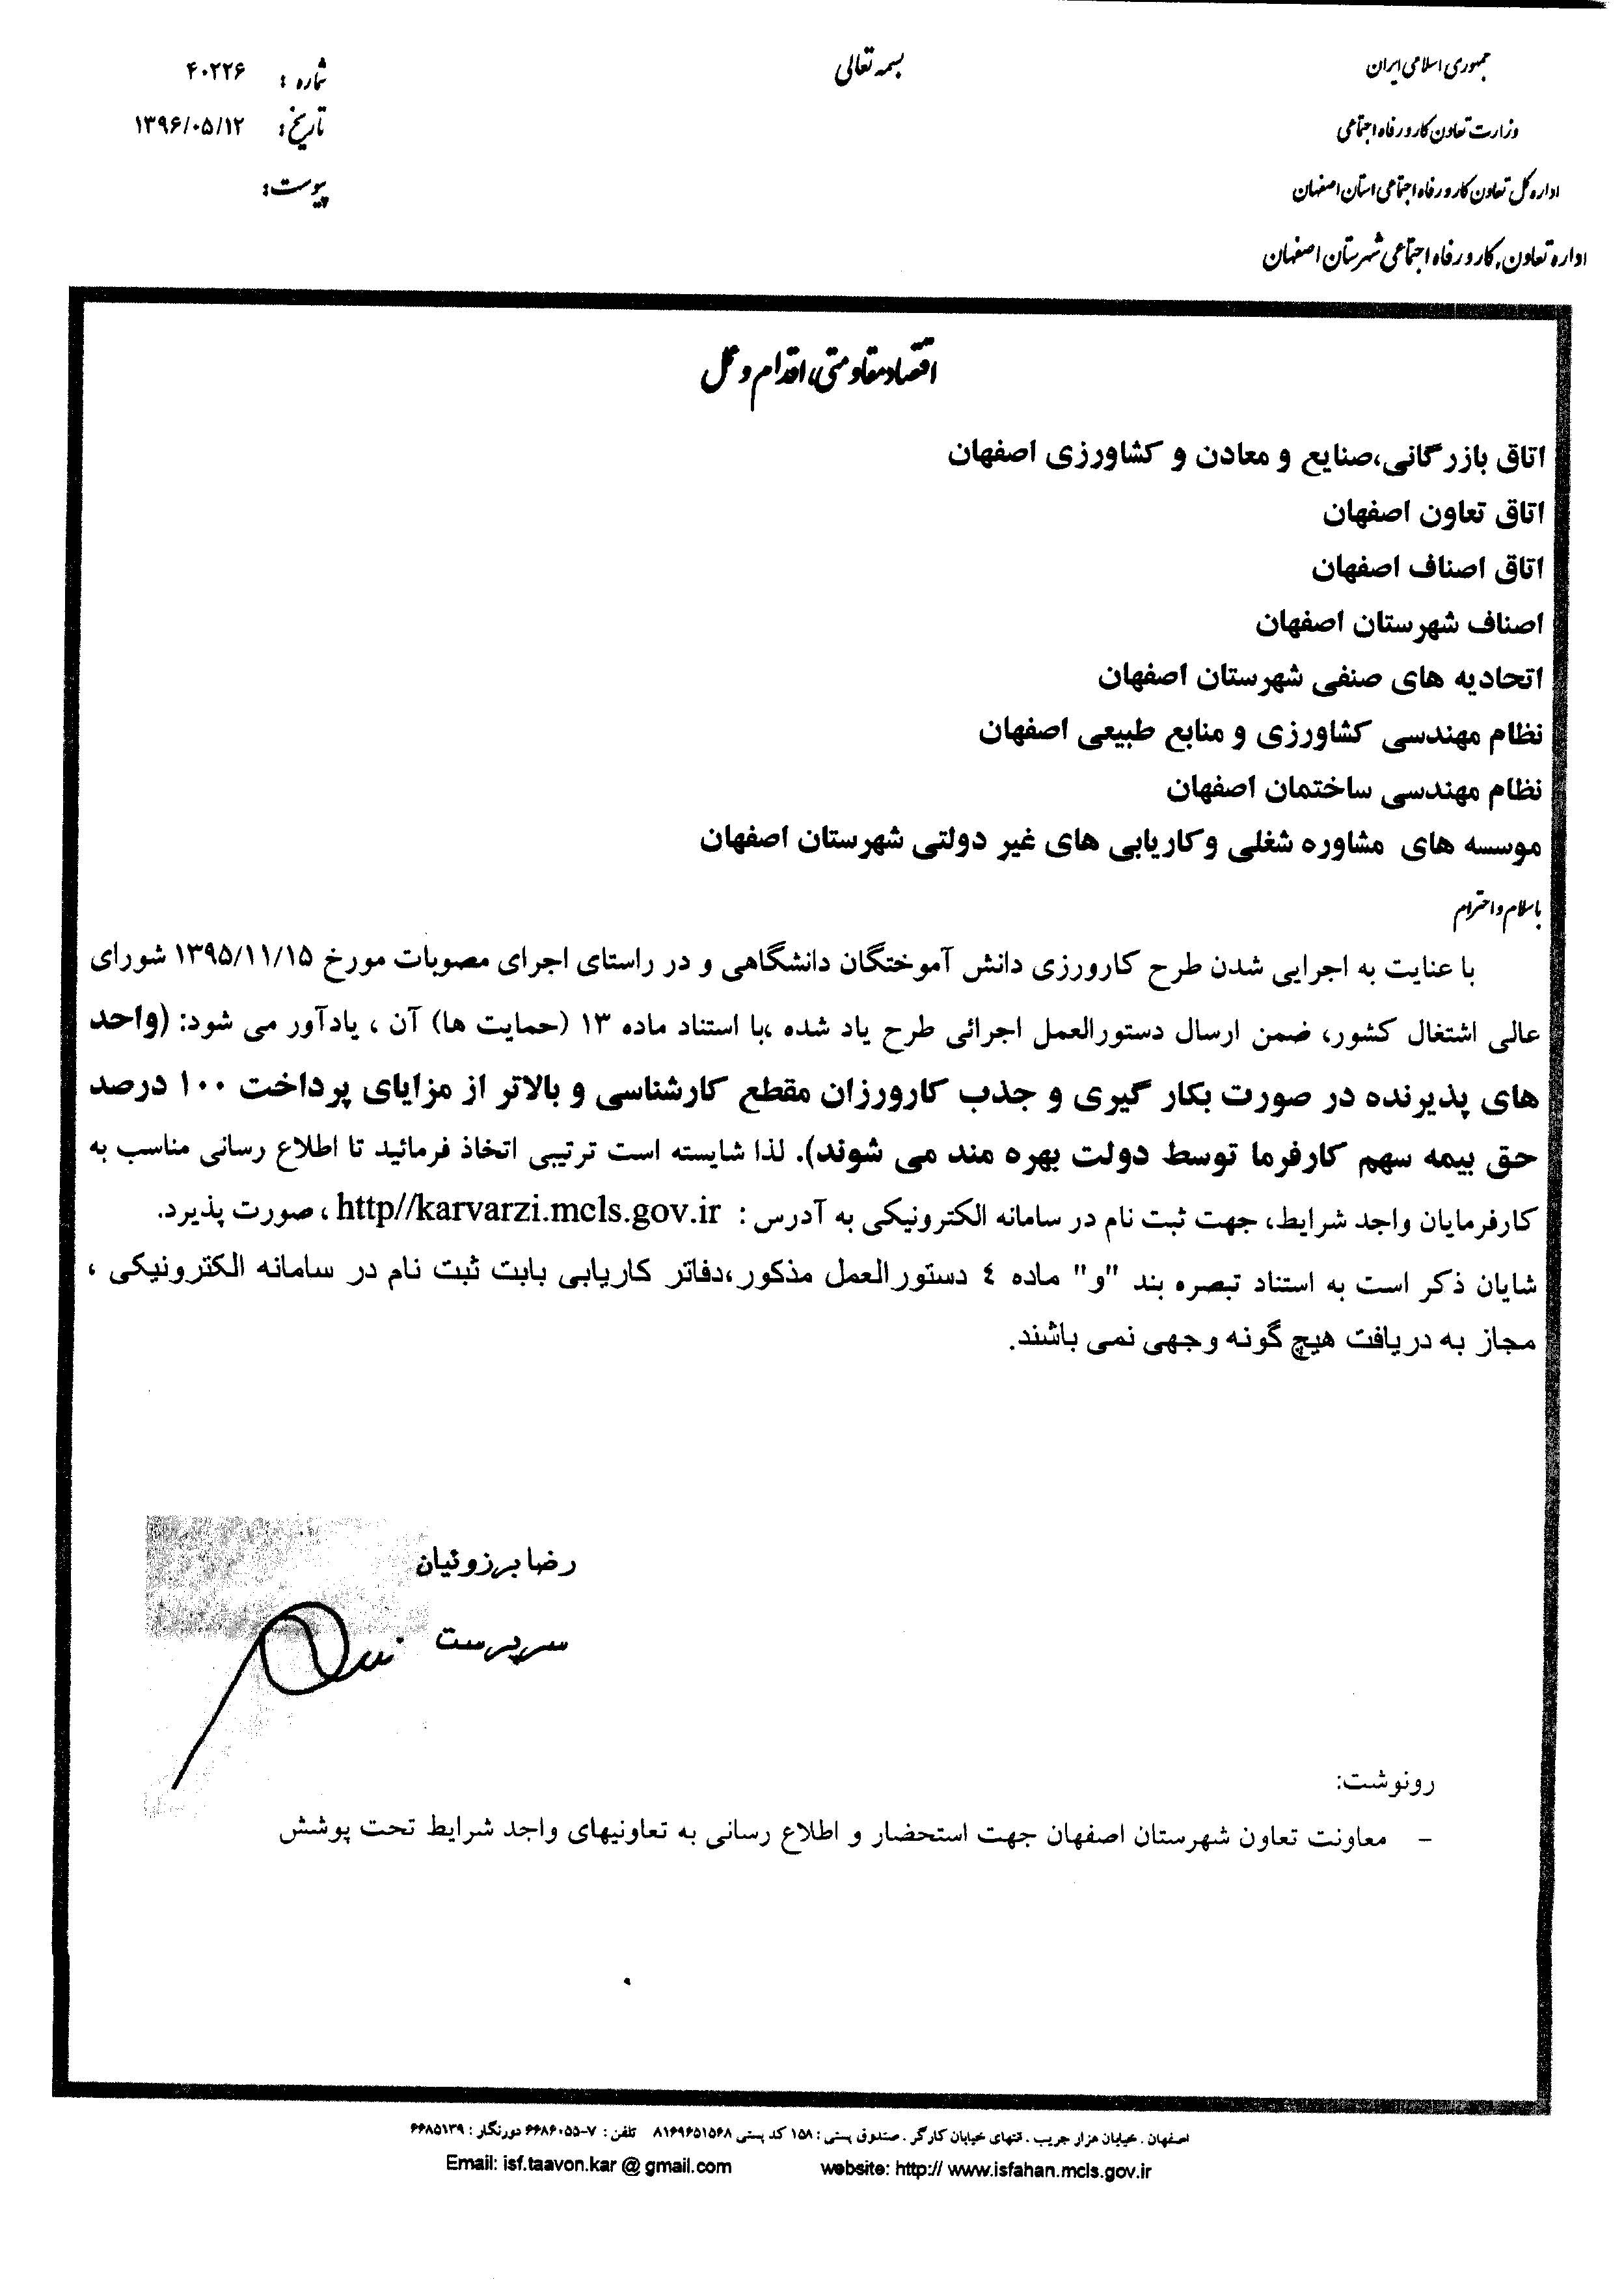 جمهوری اسلامی ایران
وزارت تعاون کار و رفاه اجتماعی
اداره کل تعاون کار و رفاه اجتماعی استان اصفهان
اداره تعاون، کار و رفاه اجتماعی شهرستان اصفهان
بسمه تعالی
شماره : ۴۰۲۲۶
تاریخ: ۱۳۹۶/۰۵/۱۲
پیوست:
اقتصاد مقاومتی، اقدام و عمل
اتاق بازرگانی،صنایع و معادن و کشاورزی اصفهان
اتاق تعاون اصفهان
اتاق اصناف اصفهان
اصناف شهرستان اصفهان
اتحادیه های صنفی شهرستان اصفهان
نظام مهندسی کشاورزی و منابع طبیعی اصفهان
نظام مهندسی ساختمان اصفهان
موسسه های مشاوره شغلی وکاریابی های غیر دولتی شهرستان اصفهان
باسلام و احترام
با عنایت به اجرایی شدن طرح کارورزی دانش آموختگان دانشگاهی و در راستای اجرای مصوبات مورخ ۱۳۹۵/۱۱/۱۵ شورای
عالی اشتغال کشور، ضمن ارسال دستورالعمل اجرائی طرح یاد شده ،با استناد ماده ۱۳ (حمایت ها) آن ، یادآور می شود: (واحد
های پذیرنده در صورت بکار گیری و جذب کارورزان مقطع کارشناسی و بالاتر از مزایای پرداخت ۱۰۰ درصد
حق بیمه سهم کارفرما توسط دولت بهره مند می شوند). لذا شایسته است ترتیبی اتخاذ فرمائید تا اطلاع رسانی مناسب به
کارفرمایان واجد شرایط، جهت ثبت نام در سامانه الکترونیکی به آدرس : http//karvarzi.mcls.gov.ir ، صورت پذیرد.
شایان ذکر است به استناد تبصره بند "و" ماده ٤ دستورالعمل مذکور،دفاتر کاریابی بابت ثبت نام در سامانه الکترونیکی ،
مجاز به دریافت هیچ گونه وجهی نمی باشند.
رضا برزوئیان
سرپرست
رونوشت:
- معاونت تعاون شهرستان اصفهان جهت استحضار و اطلاع رسانی به تعاونیهای واجد شرایط تحت پوشش
اصفهان . خیابان هزار جریب . انتهای خیابان کارگر . صندوق پستی : ۱۵۸ کد پستی ۸۱۶۹۶۵۱۵۶۸ تلفن : ۷-۶۶۸۶۰۵۵ دورنگار : ۶۶۸۵۱۳۹
Email: isf.taavon.kar @ gmail.com website: http:// www.isfahan.mcls.gov.ir